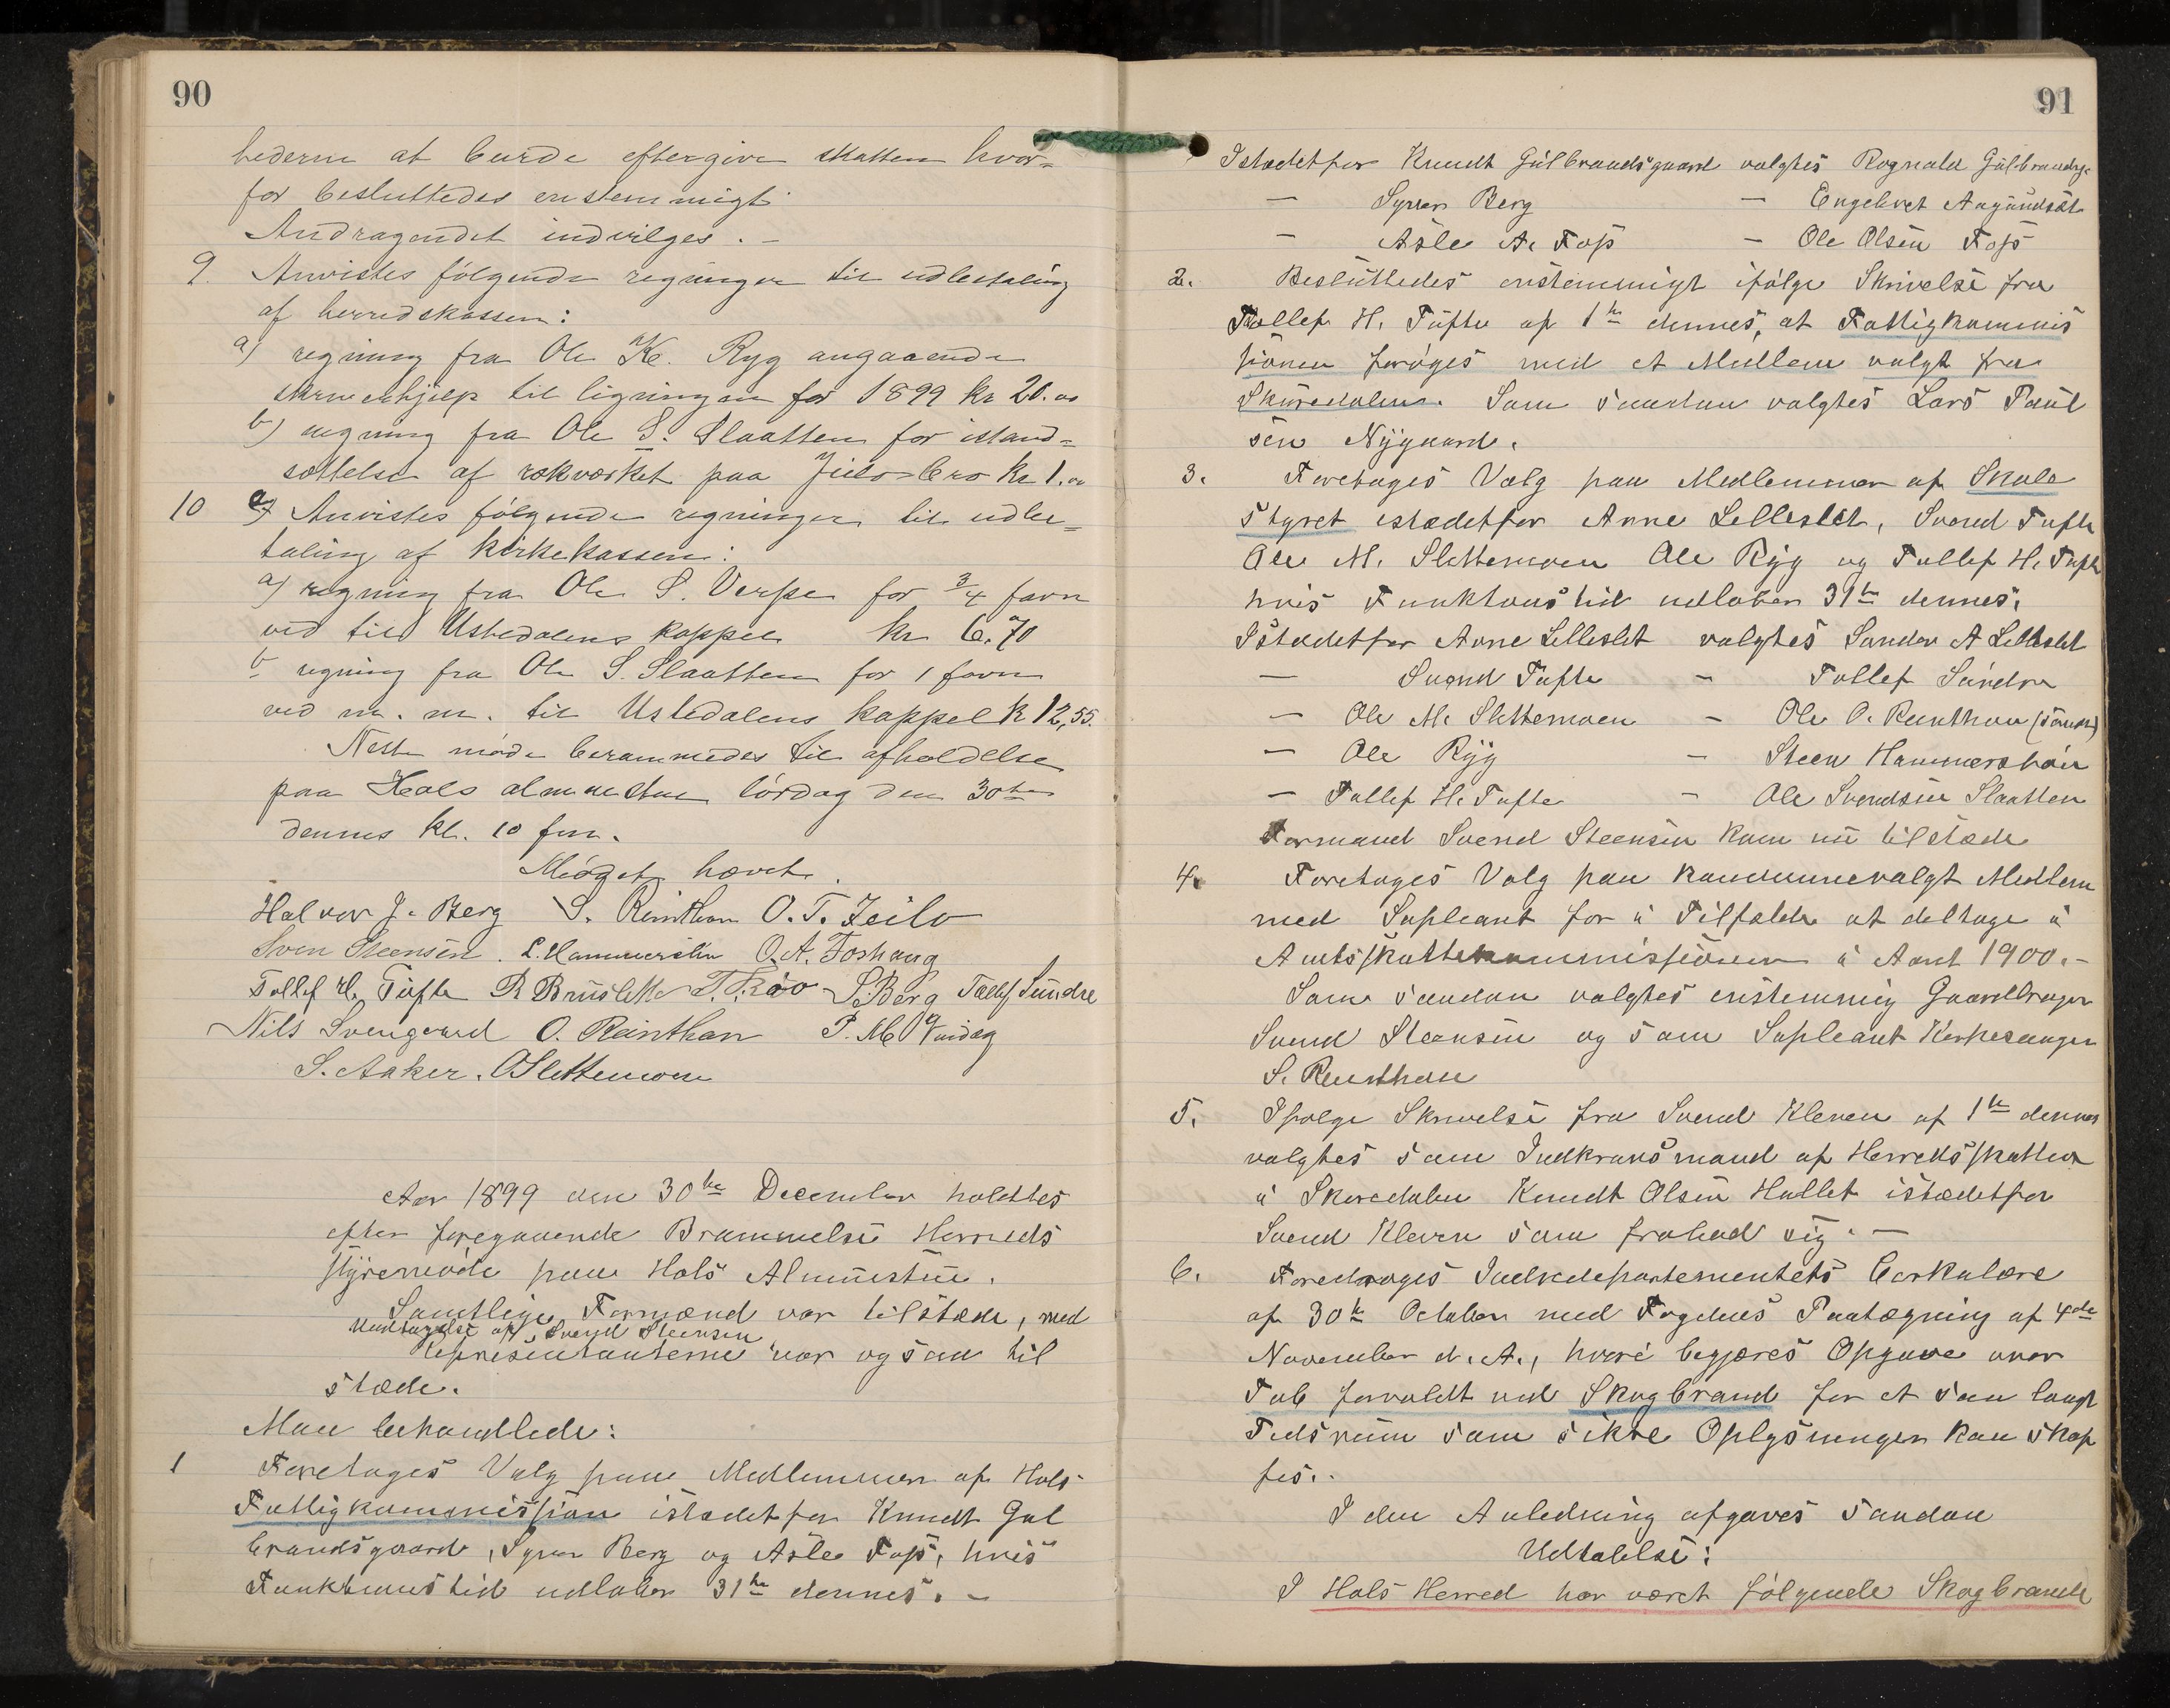 90
hederne at burde eftergive skatten hvor=
for besluttedes enstemmigt:
Andragendet indvilges. -
9. Anvistes følgende regninger til udbetaling
af herredskassen:
a) regning fra Ole K. Ryg angaaende
skriverhjelp til ligningen for 1899 kr 20.00
b) regning fra Ole S. Slaatten for istand=
sættelse af rækværket paa Jeilo bro kr 1.00
10 Anvistes følgende regninger til udbe=
taling af kirkekassen:
a) regning fra Ole S. Verpe for 3/4 favn
ved til Ustedalens kappel kr 6.70
b regning fra Ole S. Slaatten for 1 favn
ved m. m. til Ustedalens kappel kr 12,55.
Neste møde berammedes til afholdelse
paa Hols almuestue lørdag den 30te
dennes kl. 10 fm.
Mødet hævet.
Halvor J. Berg S. Reinthon O. T. Jeilo
Sven Steensen. L. Hammersbøn O. A. Foshaug
Tollef H. Tufte R Bruslette T. T. Røo S. Berg Tollef Sundre
Nils Svengaard O. Reinthon P. M.
S. Aaker. O Slettemoen
Aar 1899 den 30te December holdtes
efter foregaaende Brammelse Herreds
styremøde paa Hols Almuestue.
Samtlige Formænd var tilstæde, med
Undtagelse af Svend Steensen
Representanterne var ogsaa til
stæde.
Man behandlede:
1 Foretoges Valg paa Medlemmer af Hols
Fattigkommission istædetfor Knudt Gul
brandsgaard, Syver Berg og Asle Foss, hvis
Funktionstid udløber 31te dennes. -
91
Istædetfor Knudt Gulbrandsgaard valgtes Rognald Gulbrandsg.
— Syver Berg — Engebret Aagundsæt
— Asle A. Foss — Ole Olsen Foss
2. Besluttedes enstemmigt ifølge Skrivelse fra
Tollef H. Tufte af 1te dennes, at Fattigkommis
sionen forøges med et Medlem valgt fra
Skuredalen. Som saadan valgtes Lars Paul
sen Nygaard.
3. Foretoges Valg paa Medlemmer af Skole
styret istædetfor Anne Lilleslet, Svend Tufte
Ole M. Slettemoen Ole Ryg og Tollef H. Tufte
hvis Funktonstid udløber 31te dennes.
Istædetfor Anne Lilleslet valgtes Sander A Lilleslet
— Svend Tufte — Tollef Sundre
— Ole M. Slettemoen — Ole O. Reinthon
— Ole Ryg — Steen Hammersbøen
— Tollef H. Tufte — Ole Svendsen Slaatten
Formand Svend Steensen kom nu tilstæde
4. Foretoges Valg paa kommunevalgt Medlem
med Supleant for i Tilfælde at deltage i
Amtsskattekommissionen i Aaret 1900. -
Som saadan valgtes enstemmig Gaardbruger
Svend Steensen og som Supleant Kirkesanger
S. Reinthon
5. Ifølge Skrivelse fra Svend Kleven af 1te dennes
valgtes som Indkravsmand af Herredsskatten
i Skuredalen Knudt Olsen Hallet istædetfor
Svend Kleven som frabad sig. —
6. Foredroges Indredepartementets Cirkulære
af 30te October med Fogdens Paategning af 4de
November d. A., hvori begjæres Opgave over
Tab forvoldt ved Skogbrand for et saa langt
Tidsrum som sikre Oplysninger kan skaf
fes.
I den Anledning afgaves saadan
Udtalelse:
I Hols Herred har været følgende Skogbrande